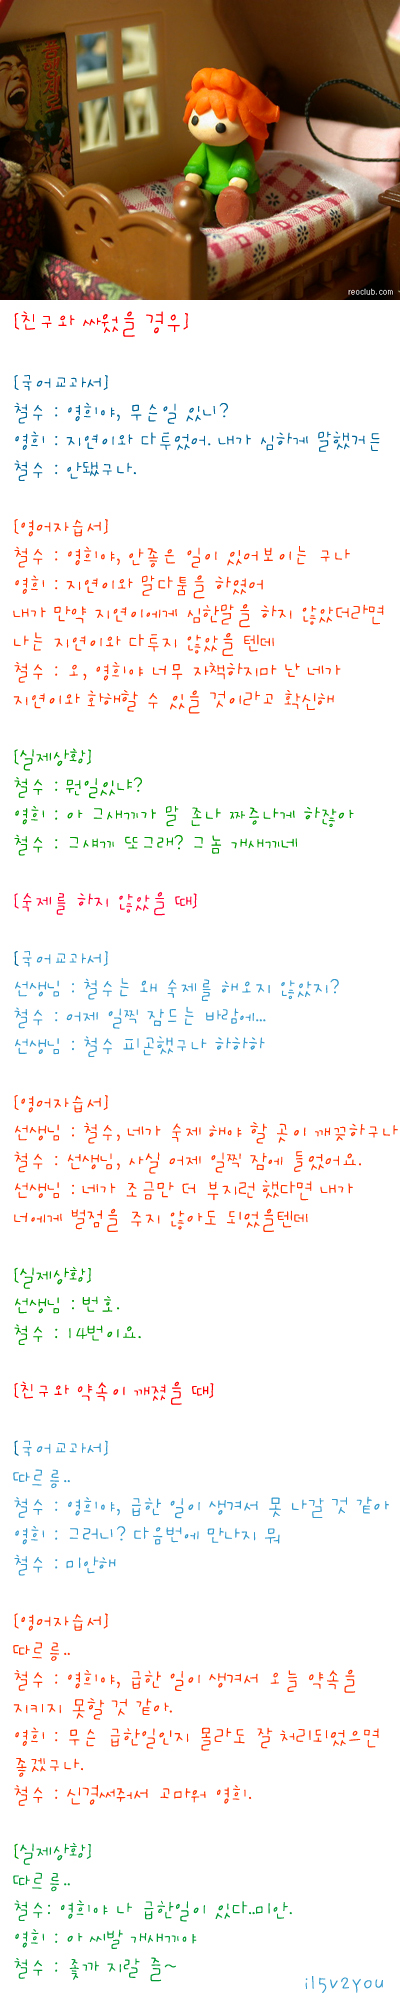 reoclub.com
[친구와 싸웠을 경우]
[국어교과서]
철수 : 영희야, 무슨일 있니?
영희 : 지연이와 다투었어. 내가 심하게 말했거든
철수 : 안됐구나.
[영어자습서]
철수 : 영희야, 안좋은 일이 있어보이는 구나
영희 : 지연이와 말다툼을 하였어
내가 만약 지연이에게 심한말을 하지 않았더라면
나는 지연이와 다투지 않았을 텐데
철수 : 오, 영희야 너무 자책하지마 난 네가
지연이와 화해할 수 있을 것이라고 확신해
[실제상황]
철수 : 뭔일있냐?
영희 : 아 그새끼가 말 존나 짜증나게 하잖아
철수 : 그새끼 또그래? 그놈 개새끼네
[숙제를 하지 않았을 때]
[국어교과서]
선생님 : 철수는 왜 숙제를 해오지 않았지?
철수 : 어제 일찍 잠드는 바람에...
선생님 : 철수 피곤했구나 하하하
[영어자습서]
선생님 : 철수, 네가 숙제 해야 할 곳이 깨끗하구나
철수 : 선생님, 사실 어제 일찍 잠에 들었어요.
선생님 : 네가 조금만 더 부지런 했다면 내가
너에게 벌점을 주지 않아도 되었을텐데
[실제상황]
선생님 : 번호.
철수 : 14번이요.
[친구와 약속이 깨졌을 때]
[국어교과서]
따르릉..
철수 : 영희야, 급한 일이 생겨서 못 나갈 것 같아
영희 : 그러니? 다음번에 만나지 뭐
철수 : 미안해
[영어자습서]
따르릉..
철수 : 영희야, 급한 일이 생겨서 오늘 약속을
지키지 못할 것 같아.
영희 : 무슨 급한일인지 몰라도 잘 처리되었으면
좋겠구나.
철수 : 신경써주어서 고마워 영희.
[실제상황]
따르릉..
철수: 영희야 나 급한일이 있다..미안.
영희 : 아 씨발 개새끼야
철수 : 좆까 지랄 즐~
il5v2you